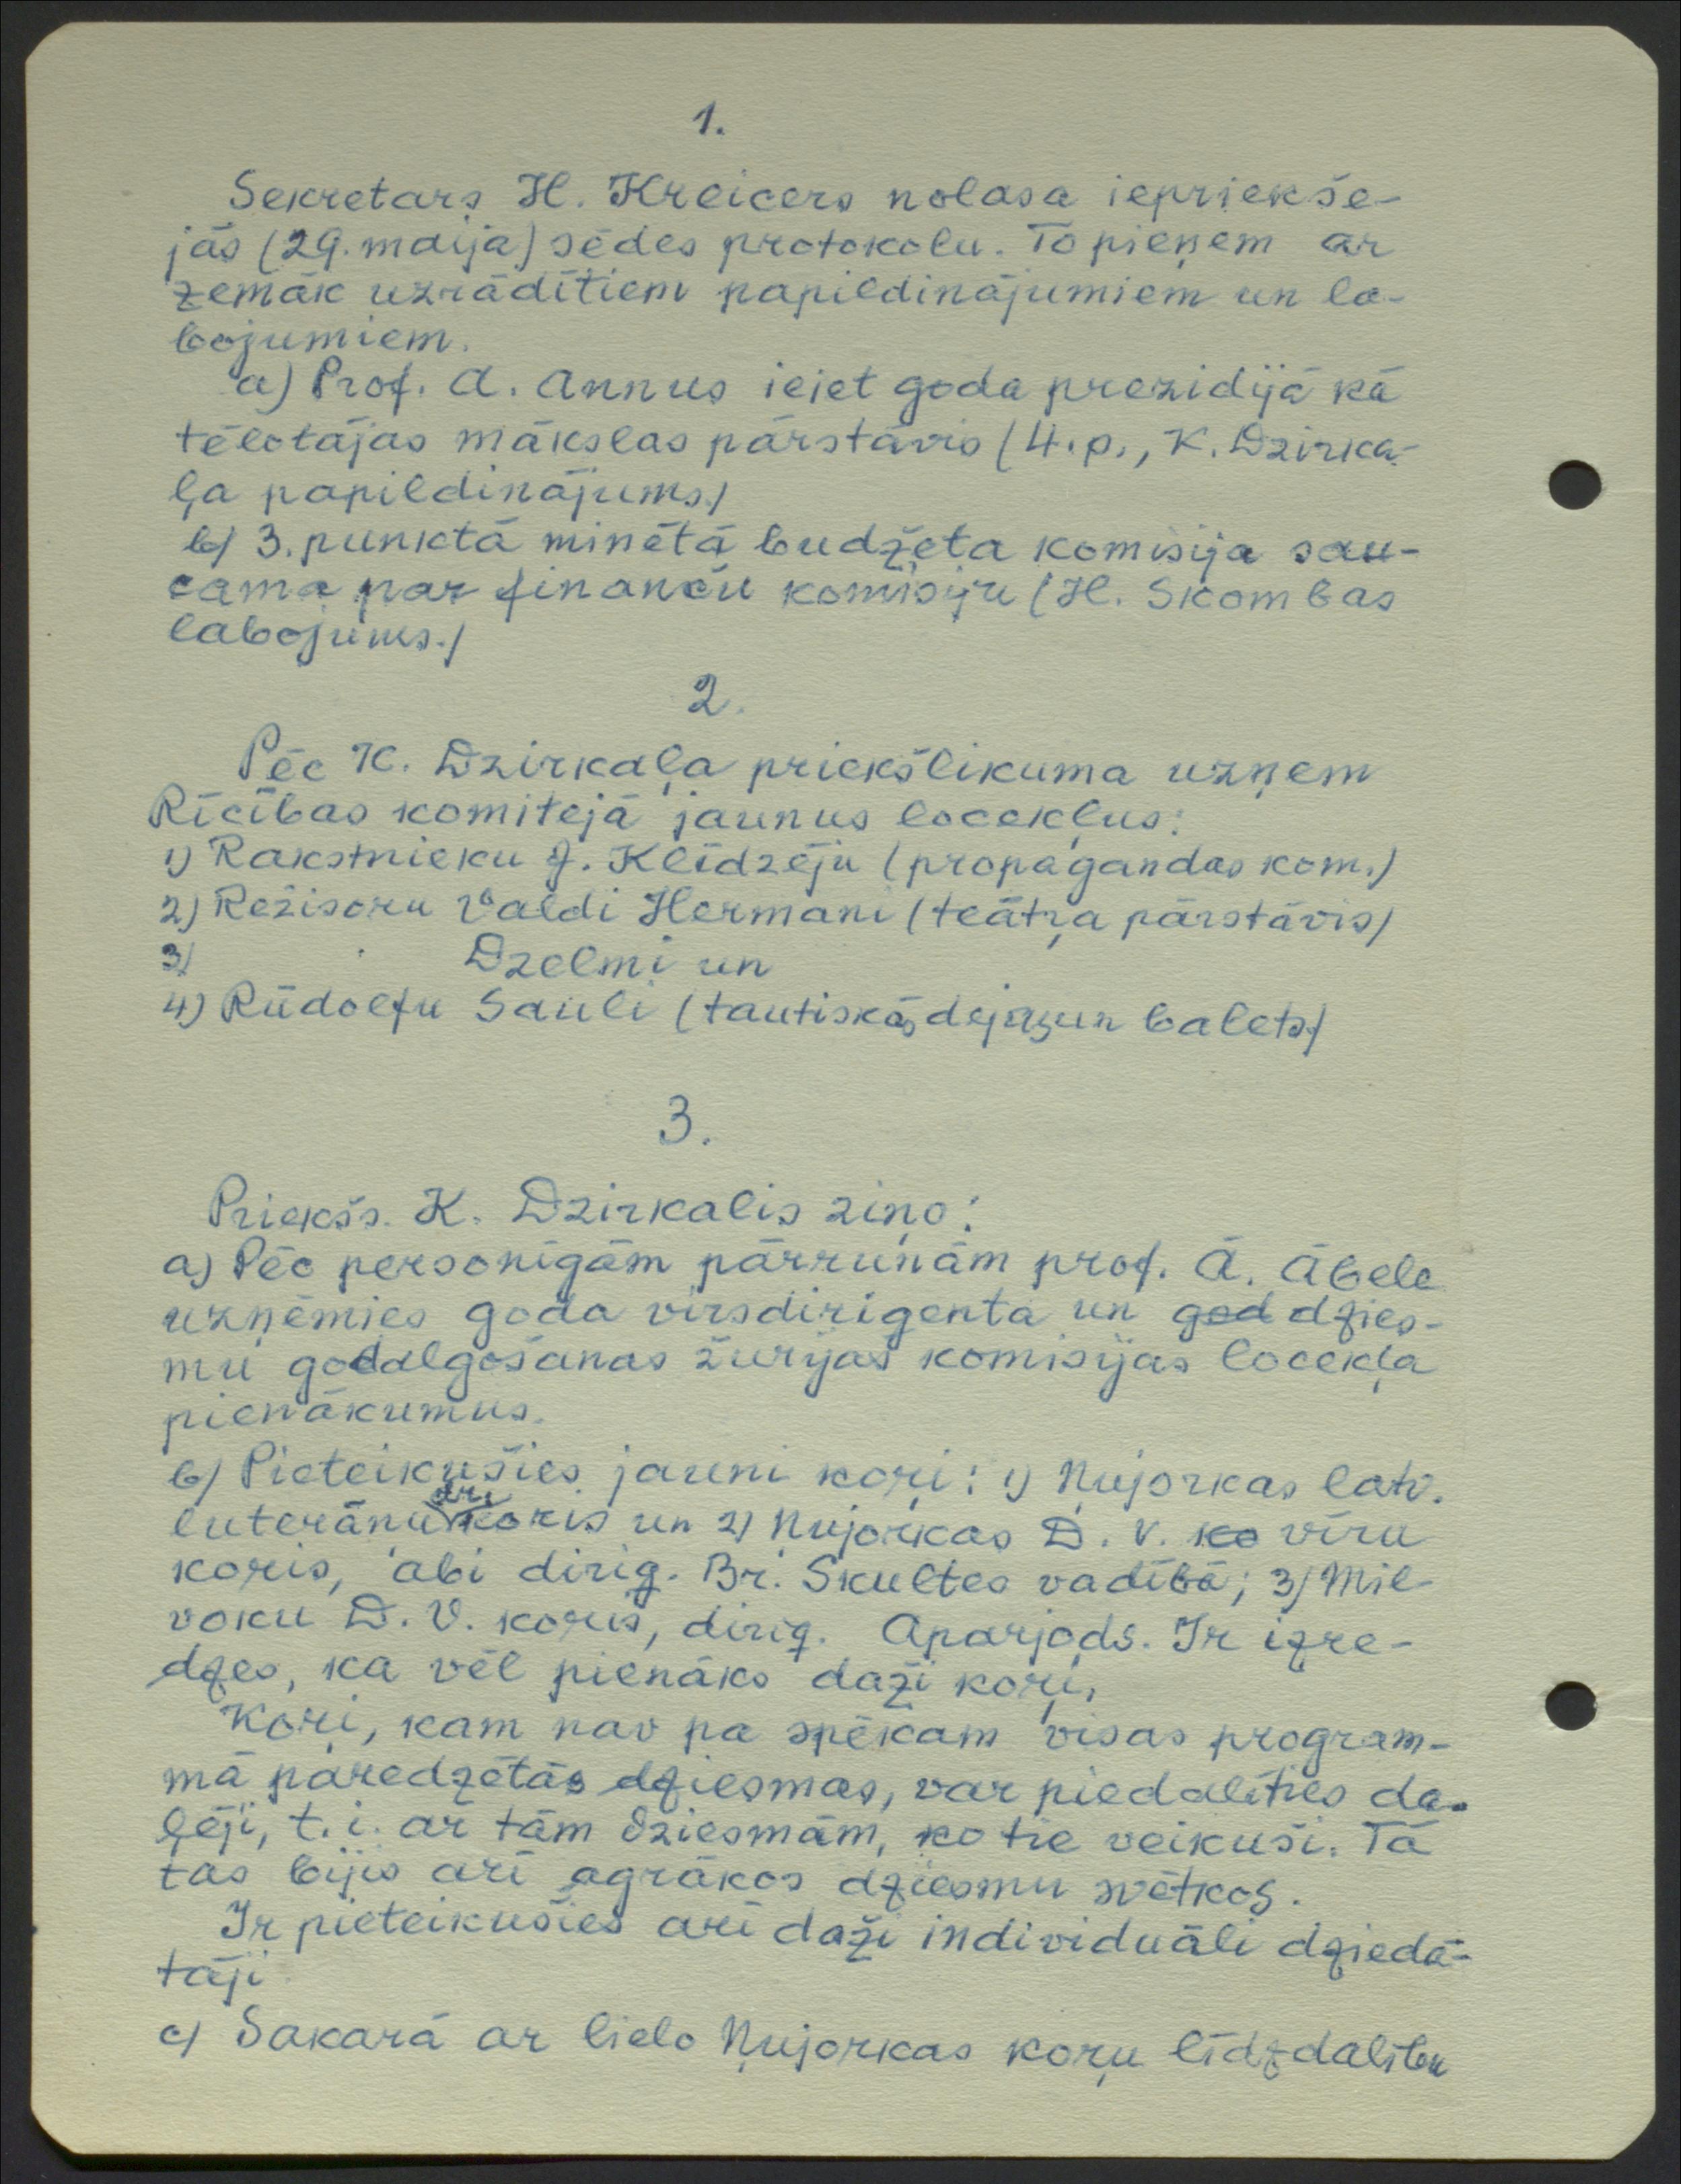 1.
Sekretars H. Kreicers nolasa iepriekše-
jās (29. maija) sēdes protokolu. To pieņem ar
zemāk uzrādītiem papildinājumiem un la-
bojumiem.
a) Prof. A. Annus ieiet goda prezidijā kā
tēlotājas mākslas pārstāvis (4. p., K. Dzirka-
ļa papildinājums.)
b) 3. punktā minētā budžeta komisija sau-
cama par finanču komisiju (H. Skombas
labojums.)
2.
Pēc K. Dzirkaļa priekšlikuma uzņem
Rīcības komitejā jaunus locekļus:
1) Rakstnieku J. Klīdzēju (propagandas kom.)
2) Režisoru Valdi Hermani (teātŗa pārstāvis)
3) Dzelmi un
4) Rūdolfu Sauli (tautiskās dejas un balets)
3.
Priekšs. K. Dzirkalis ziņo:
a) Pēc personīgām pārrunām prof. Ā. Ābele
uzņēmies goda virsdirigenta un god dzies-
mu godalgošanas žurijas komisijas locekļa
pienākumus.
b) Pieteikušies jauni koŗi: 1) Ņujorkas latv.
luterāņu dr. koris un 2) Ņujorkas D. V. ko vīru
koris, abi dirig. Br. Skultes vadībā; 3) Mil-
voku D. V. koris, dirig. Aparjods. Ir izre-
dzes, ka vēl pienāks daži koŗi.
Koŗi, kam nav pa spēkam visas program-
mā paredzētās dziesmas, var piedalīties da-
ļēji, t. i. ar tām dziesmām, ko tie veikuši. Tā
tas bijis arī agrākos dziesmu svētkos.
Ir pieteikušies arī daži individuāli dziedā-
tāji
c) Sakarā ar lielo Ņujorkas koŗu līdzdalību